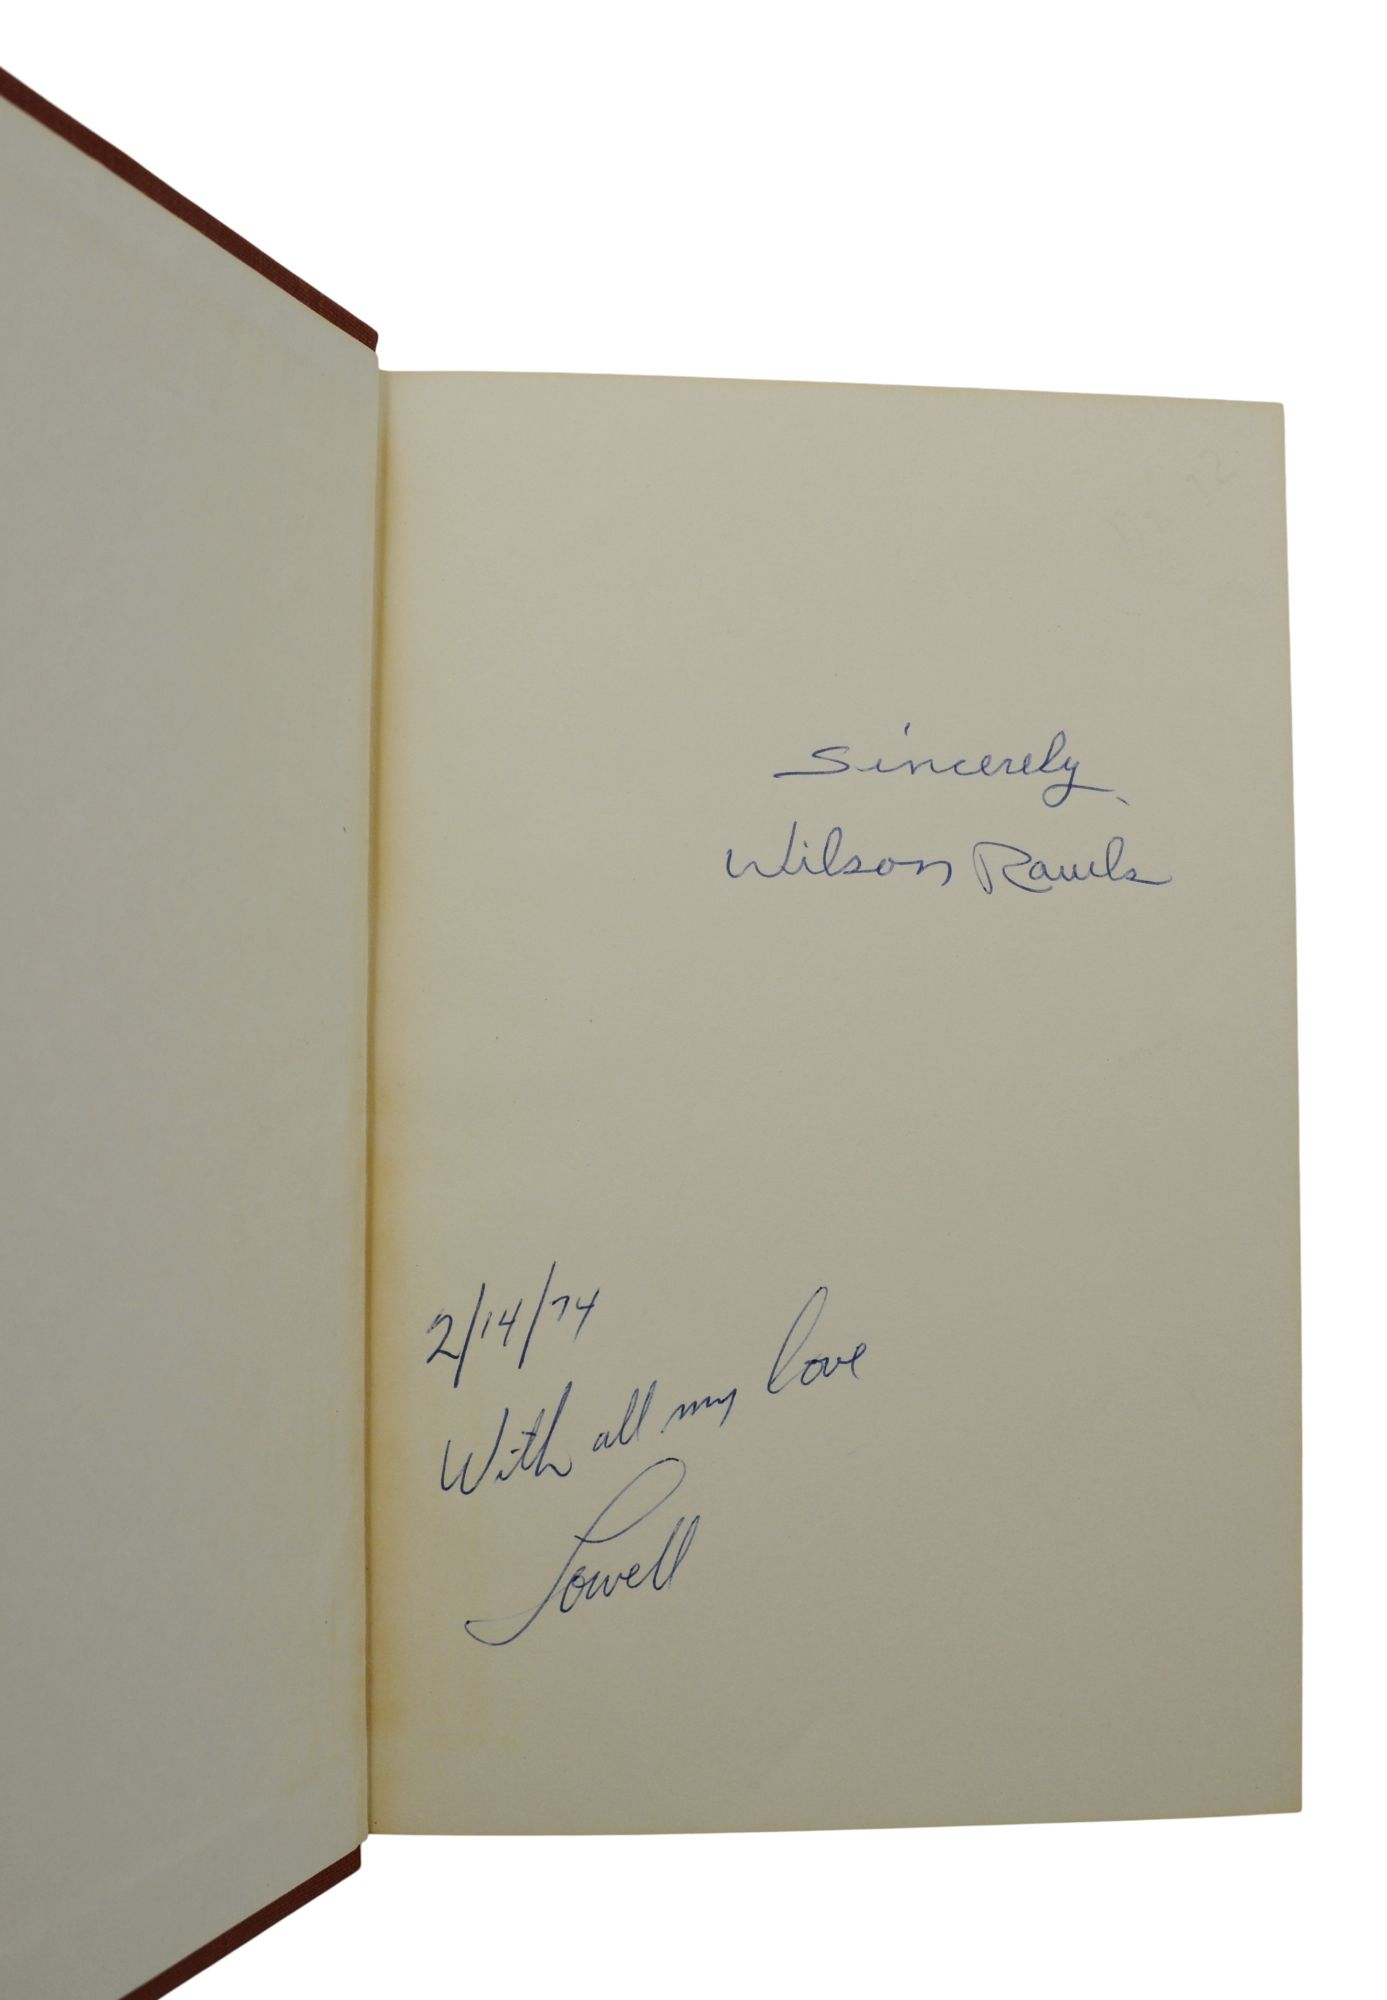 Sincerely,
Wilson Rawls
2/14/74
With all my love
Lowell